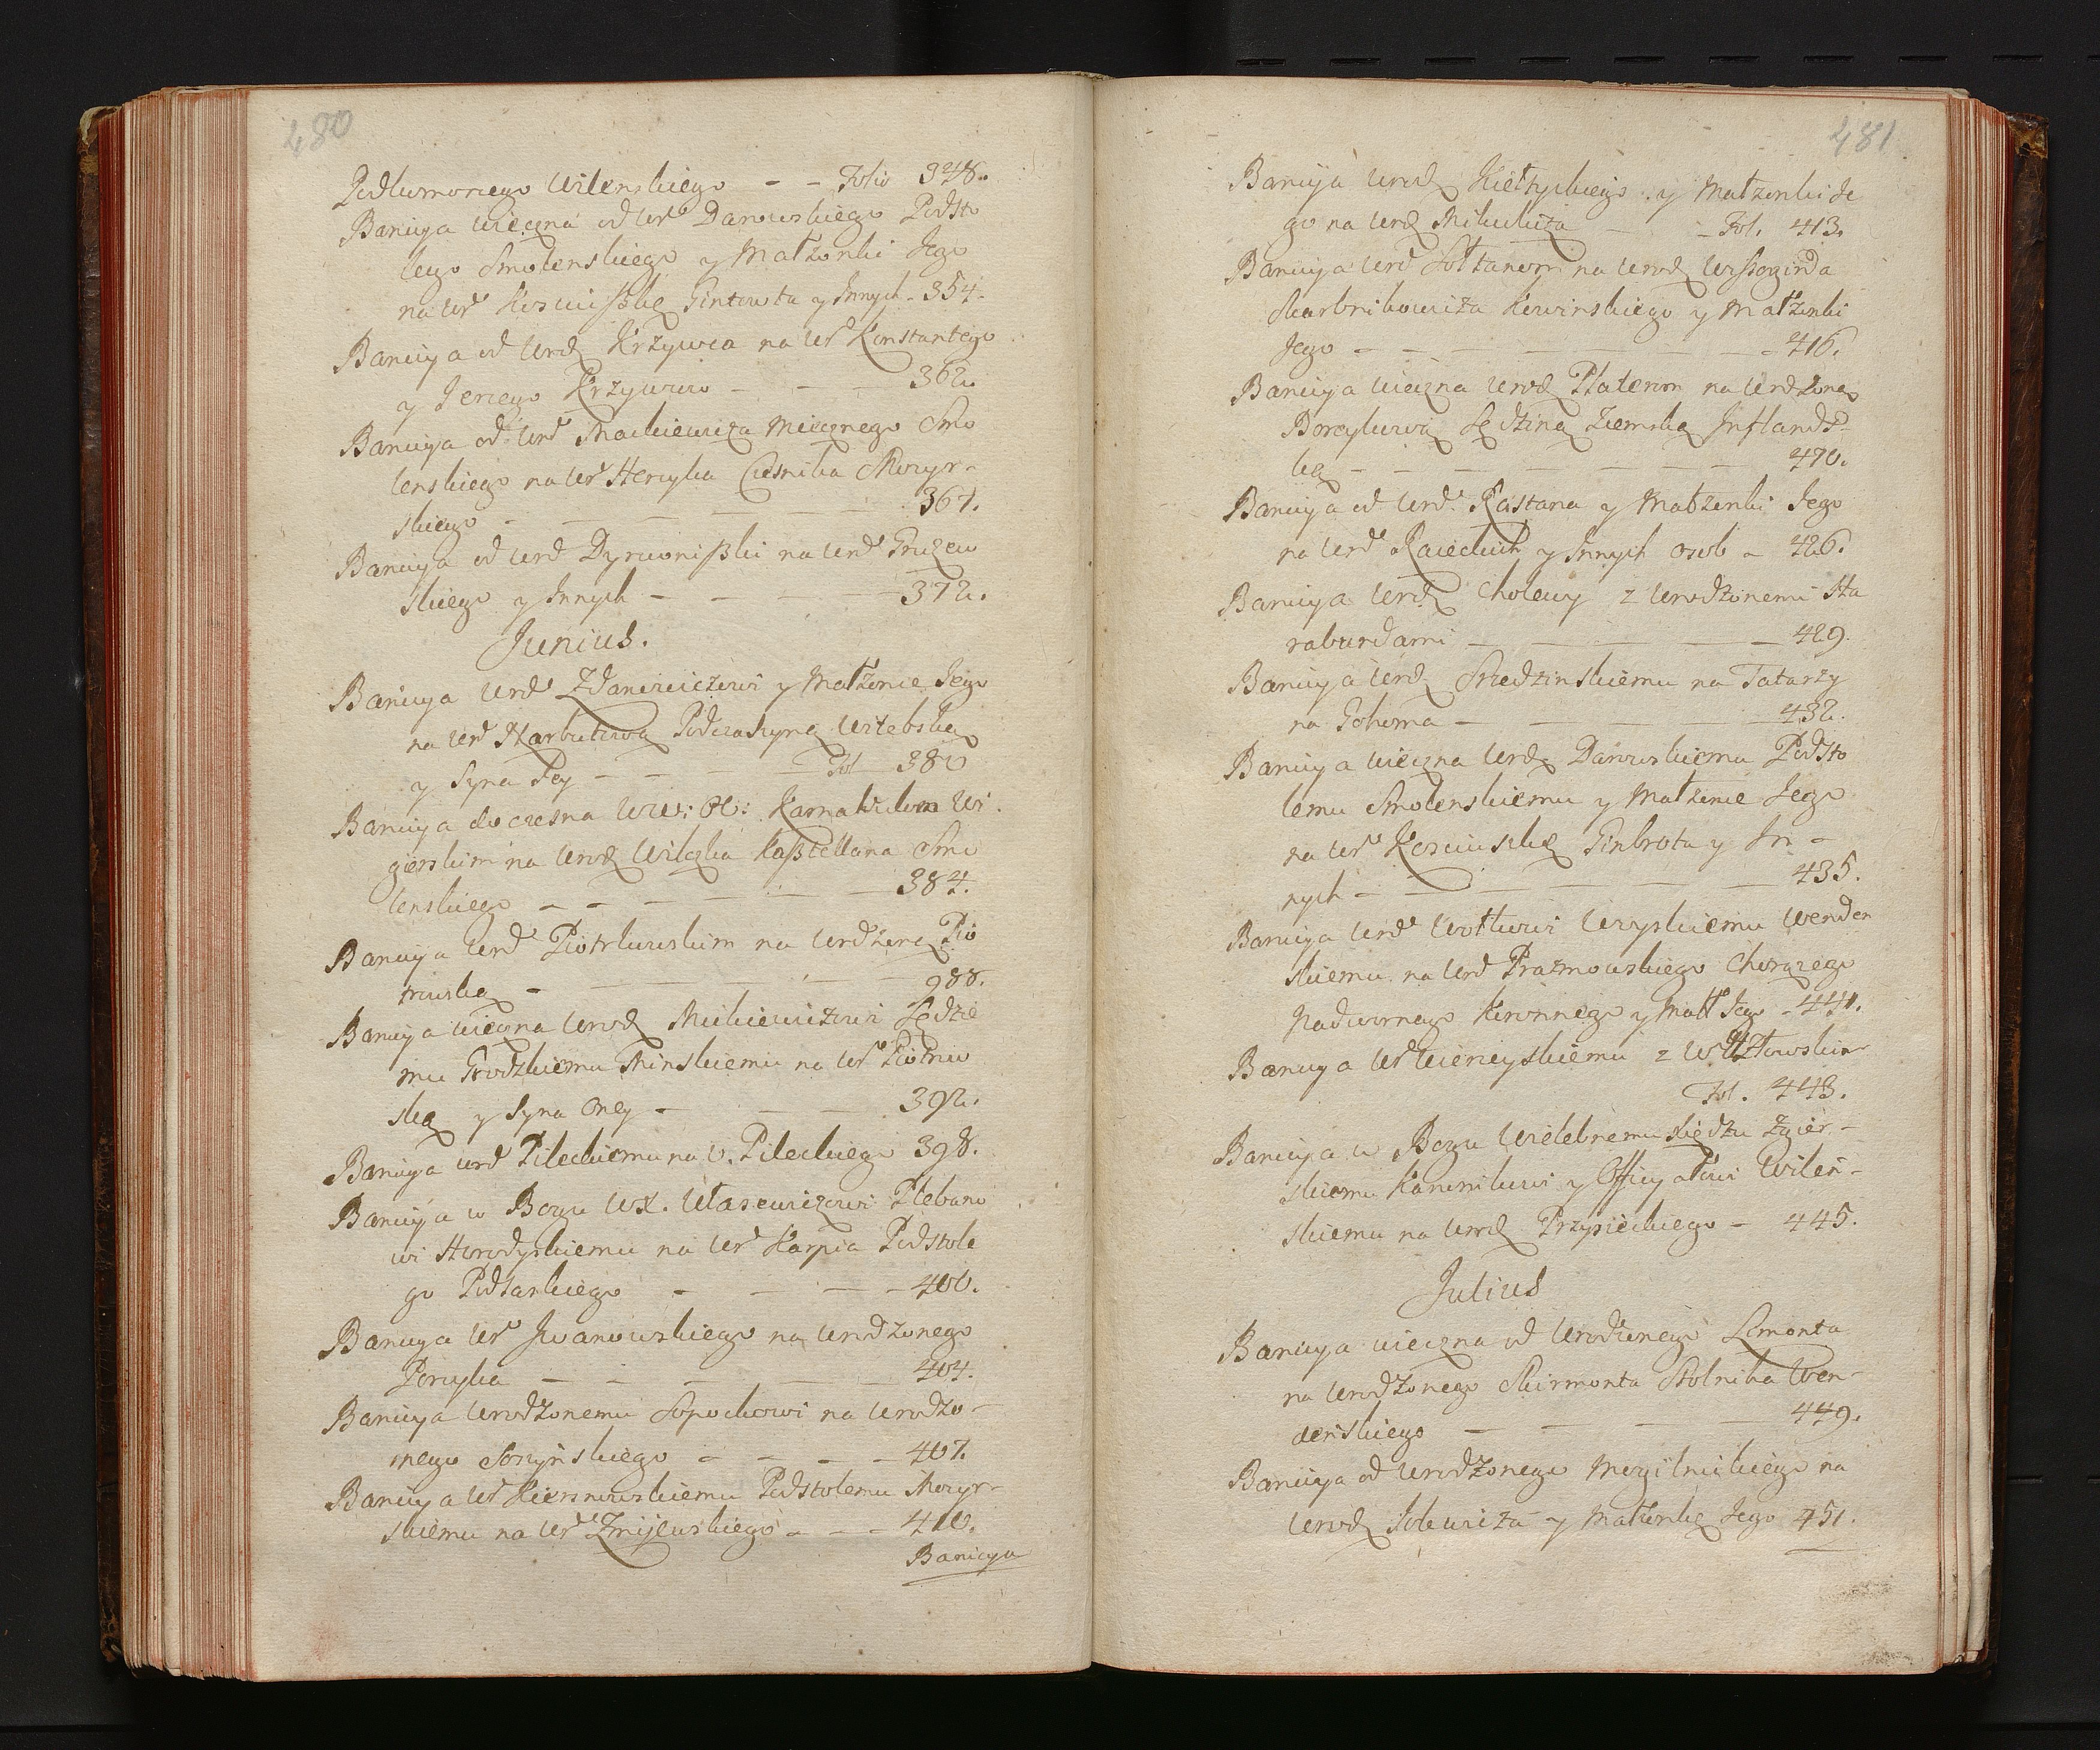 480
Podkomorzego Wilenskiego - - Folio 348.
Banicya wieczna od Ur Danowskiego Podsto
lego Smolenskiego y Małżonki Jego
na Ur Kosciuszkę Gintowta y Innych - 354.
Banicya od Urod Krzywca na Ur Konstantego
y Jerzego Krzywcow - - - 362.
Banicya od Urd Mackiewicza Miecznego Smo
lenskiego na Ur Hercyka Czesnika Mozyr-
skiego - - - - 367.
Banicya od Urd Dyrwoniszki na Urd Gruzew
skiego y Innych - - - - 372.
Junius.
Banicya Urd Zdanowiczowi y Małżonce Jego
na Urd Narbutową Podczaszynę Witebską
y Syna Jey - - - - Fol 380
Banicya doczesna Wie: Oc: Karmelitom Wi
gierskim na Urod Wilczka Kasztellana Smo
lenskiego - - - - - 384.
Banicya Urd Piotrkowskim na Urdzoną Pio
trowską - - - - 388.
Banicya wieczna Urod Mickiewiczowi Sędzie
mu Grodzkiemu Minskiemu na Ur Piotrow
ską y Syna Oney - - - 392.
Banicya Urd Pileckiemu na U. Pileckiego 398.
Banicya w Bogu WX. Własewiczowi Plebano
wi Horodyskiemu na Ur Karpia Podstole
go Podlaskiego - - - - 400.
Banicya Ur Jwanowskiego na Urodzonego
Porcyka - - - - 404.
Banicya Urodzonemu Sopockowi na Urodzo-
nego Soczynskiego - - - - 407.
Banicya Ur Kiersnowskiemu Podstolemu Mozyr-
skiemu na Ur Zmijewskiego - - - 410.
Banicya
481
Banicya Urod Kiełtyckiego y Małżonki Je
go na Urod Mikulicza - - Fol. 413.
Banicya Urd Sołtanom na Urod Wissogirda
Skarbnikowicza Kowinskiego y Małżonki
Jego - - - - - 416.
Banicya wieczna Urod Platerom na Urdzoną
Borcykową Sędziną Ziemską Inflandz-
ką - - - - - - 470.
Banicya od Urd. Kastana y Małżonki Jego
na Urd Raieckich y Innych osob - 426.
Banicya Urod Cholewy z Urodzonemi Sta
raburdami - - - - - 429.
Banicya Urod Siedzinskiemu na Tatarzy
na Gohoma - - - - 432.
Banicya wieczna Urod Danowskiemu Podsto
lemu Smolenskiemu y Małżonce Jego
na Ur Kosciuszkę Ginbrota y In-
nych - - - - - 435.
Banicya Urd Wołkowi Woyskiemu Wenden
skiemu na Urd Prażmowskiego Chorązego
Nadwornego Koronnego y Małł Jego - 441.
Banicya Ur Wierzeyskiemu z Ur Kozłowskim
Fol. 443.
Banicya w Bogu Wielebnemu Xiędzu Zgier-
skiemu Kanonikowi y Officyałowi Wileń-
skiemu na Urod Przysieckiego - 445.
Julius
Banicya wieczna od Urodzonego Limonta
na Urodzonego Skirmonta Stolnika Wen-
denskiego - - - - 449.
Banicya od Urodzonego Mogilnickiego na
Urod Jolewicza y Małżonkę Jego 451.